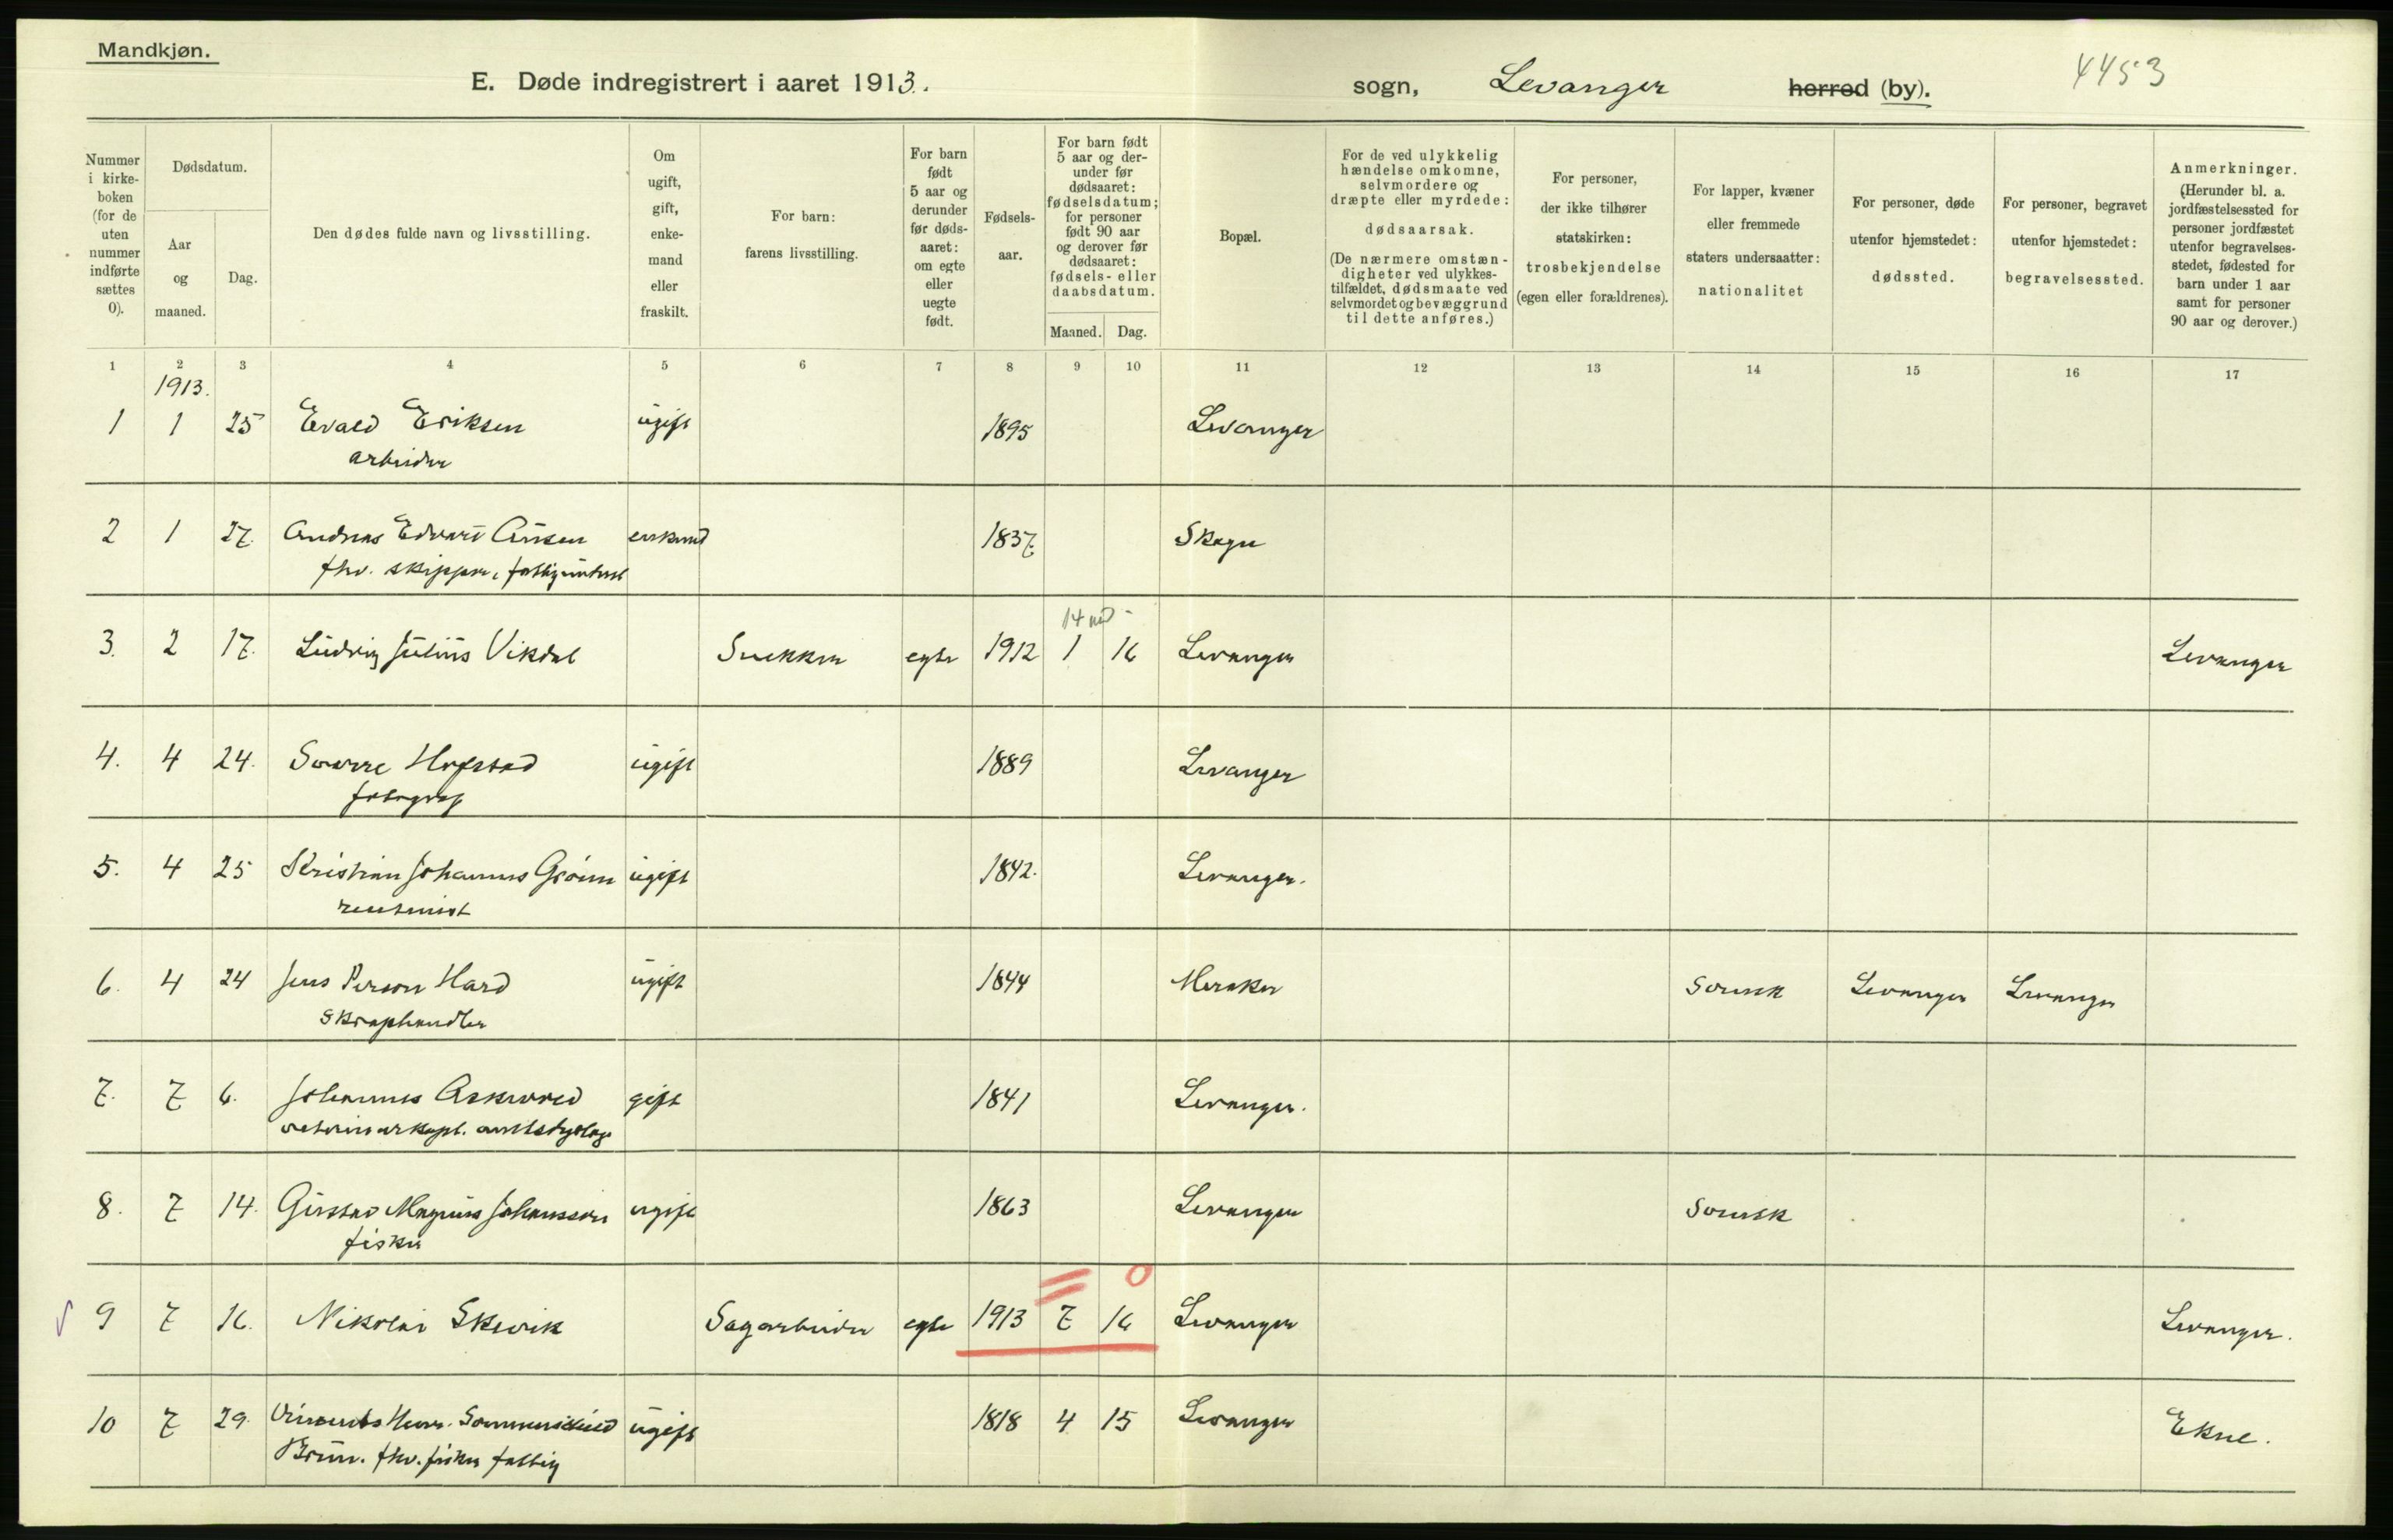 Mandkjøn.
E. Døde indregistrert i aaret 1913.
sogn, Levanger herred (by).
4453
Nummer i kirkeboken (for de uten nummer indførte sættes 0).
Dødsdatum.
Aar og maaned.
Dag.
Den dødes fulde navn og livsstilling.
Om ugift, gift, enkemand eller fraskilt.
For barn: farens livsstilling.
For barn født 5 aar og derunder før dødsaaret: om egte eller uegte født.
Fødselsaar.
For barn født 5 aar og derunder før dødsaaret: fødselsdatum; for personer født 90 aar og derover før dødsaaret: fødsels- eller daabsdatum.
Maaned. Dag.
Bopæl.
For de ved ulykkelig hændelse omkomne, selvmordere og dræpte eller myrdede: dødsaarsak. (De nærmere omstændigheter ved ulykkestilfældet, dødsmaate ved selvmordet og bevæggrund til dette anføres.)
For personer, der ikke tilhører statskirken: trosbekjendelse (egen eller forældrenes).
For lapper, kvæner eller fremmede staters undersaatter: nationalitet
For personer, døde utenfor hjemstedet: dødssted.
For personer, begravet utenfor hjemstedet: begravelsessted.
Anmerkninger. (Herunder bl. a. jordfæstelsessted for personer jordfæstet utenfor begravelsesstedet, fødested for barn under 1 aar samt for personer 90 aar og derover.)
1 2 3 4 5 6 7 8 9 10 11 12 13 14 15 16 17
1913.
1 1 25 Evald Eriksen ugift 1895 Levanger
arbeider
2 1 27. Andreas Edvart enkemd 1837. Skogn
fhv. skipper,
14 md
3. 2 17. Ludvig Julius Vikdal Snekker egte 1912 1 16 Levanger Levanger
4. 4 24. Sverre Hofstad ugift 1889 Levanger
fotograf
5. 4 25 Kristian Johannes Grønn ugift 1842. Levanger.
rentenist
6. 4 24 Jens Person Hard ugift 1844 Meraker Svensk Levanger Levanger
skraphandler
7. 7 6. Johannes Askvold gift 1841 Levanger.
8. 7 14. Gustav Magnus Johansson ugift 1863 Levanger Svensk
fisker
9 7 16. Nikolai Skevik Sagarbeider egte 1913 7 16 0 Levanger Levanger.
10 7 29. ugift 1818 4 15 Levanger Ekne.
Brun. fhv. fisker fattig